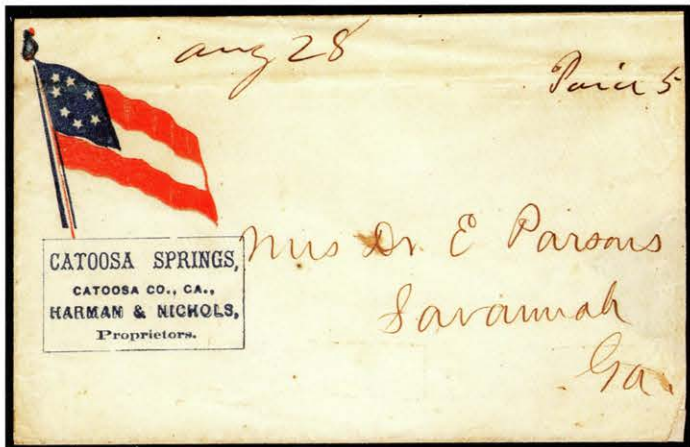 Aug 28
Paid 5
CATOOSA SPRINGS,
CATOOSA CO., CA.,
HARMAN & NICHOLS,
Proprietors.
Mrs Dr. E Parsons
Savannah
Ga.